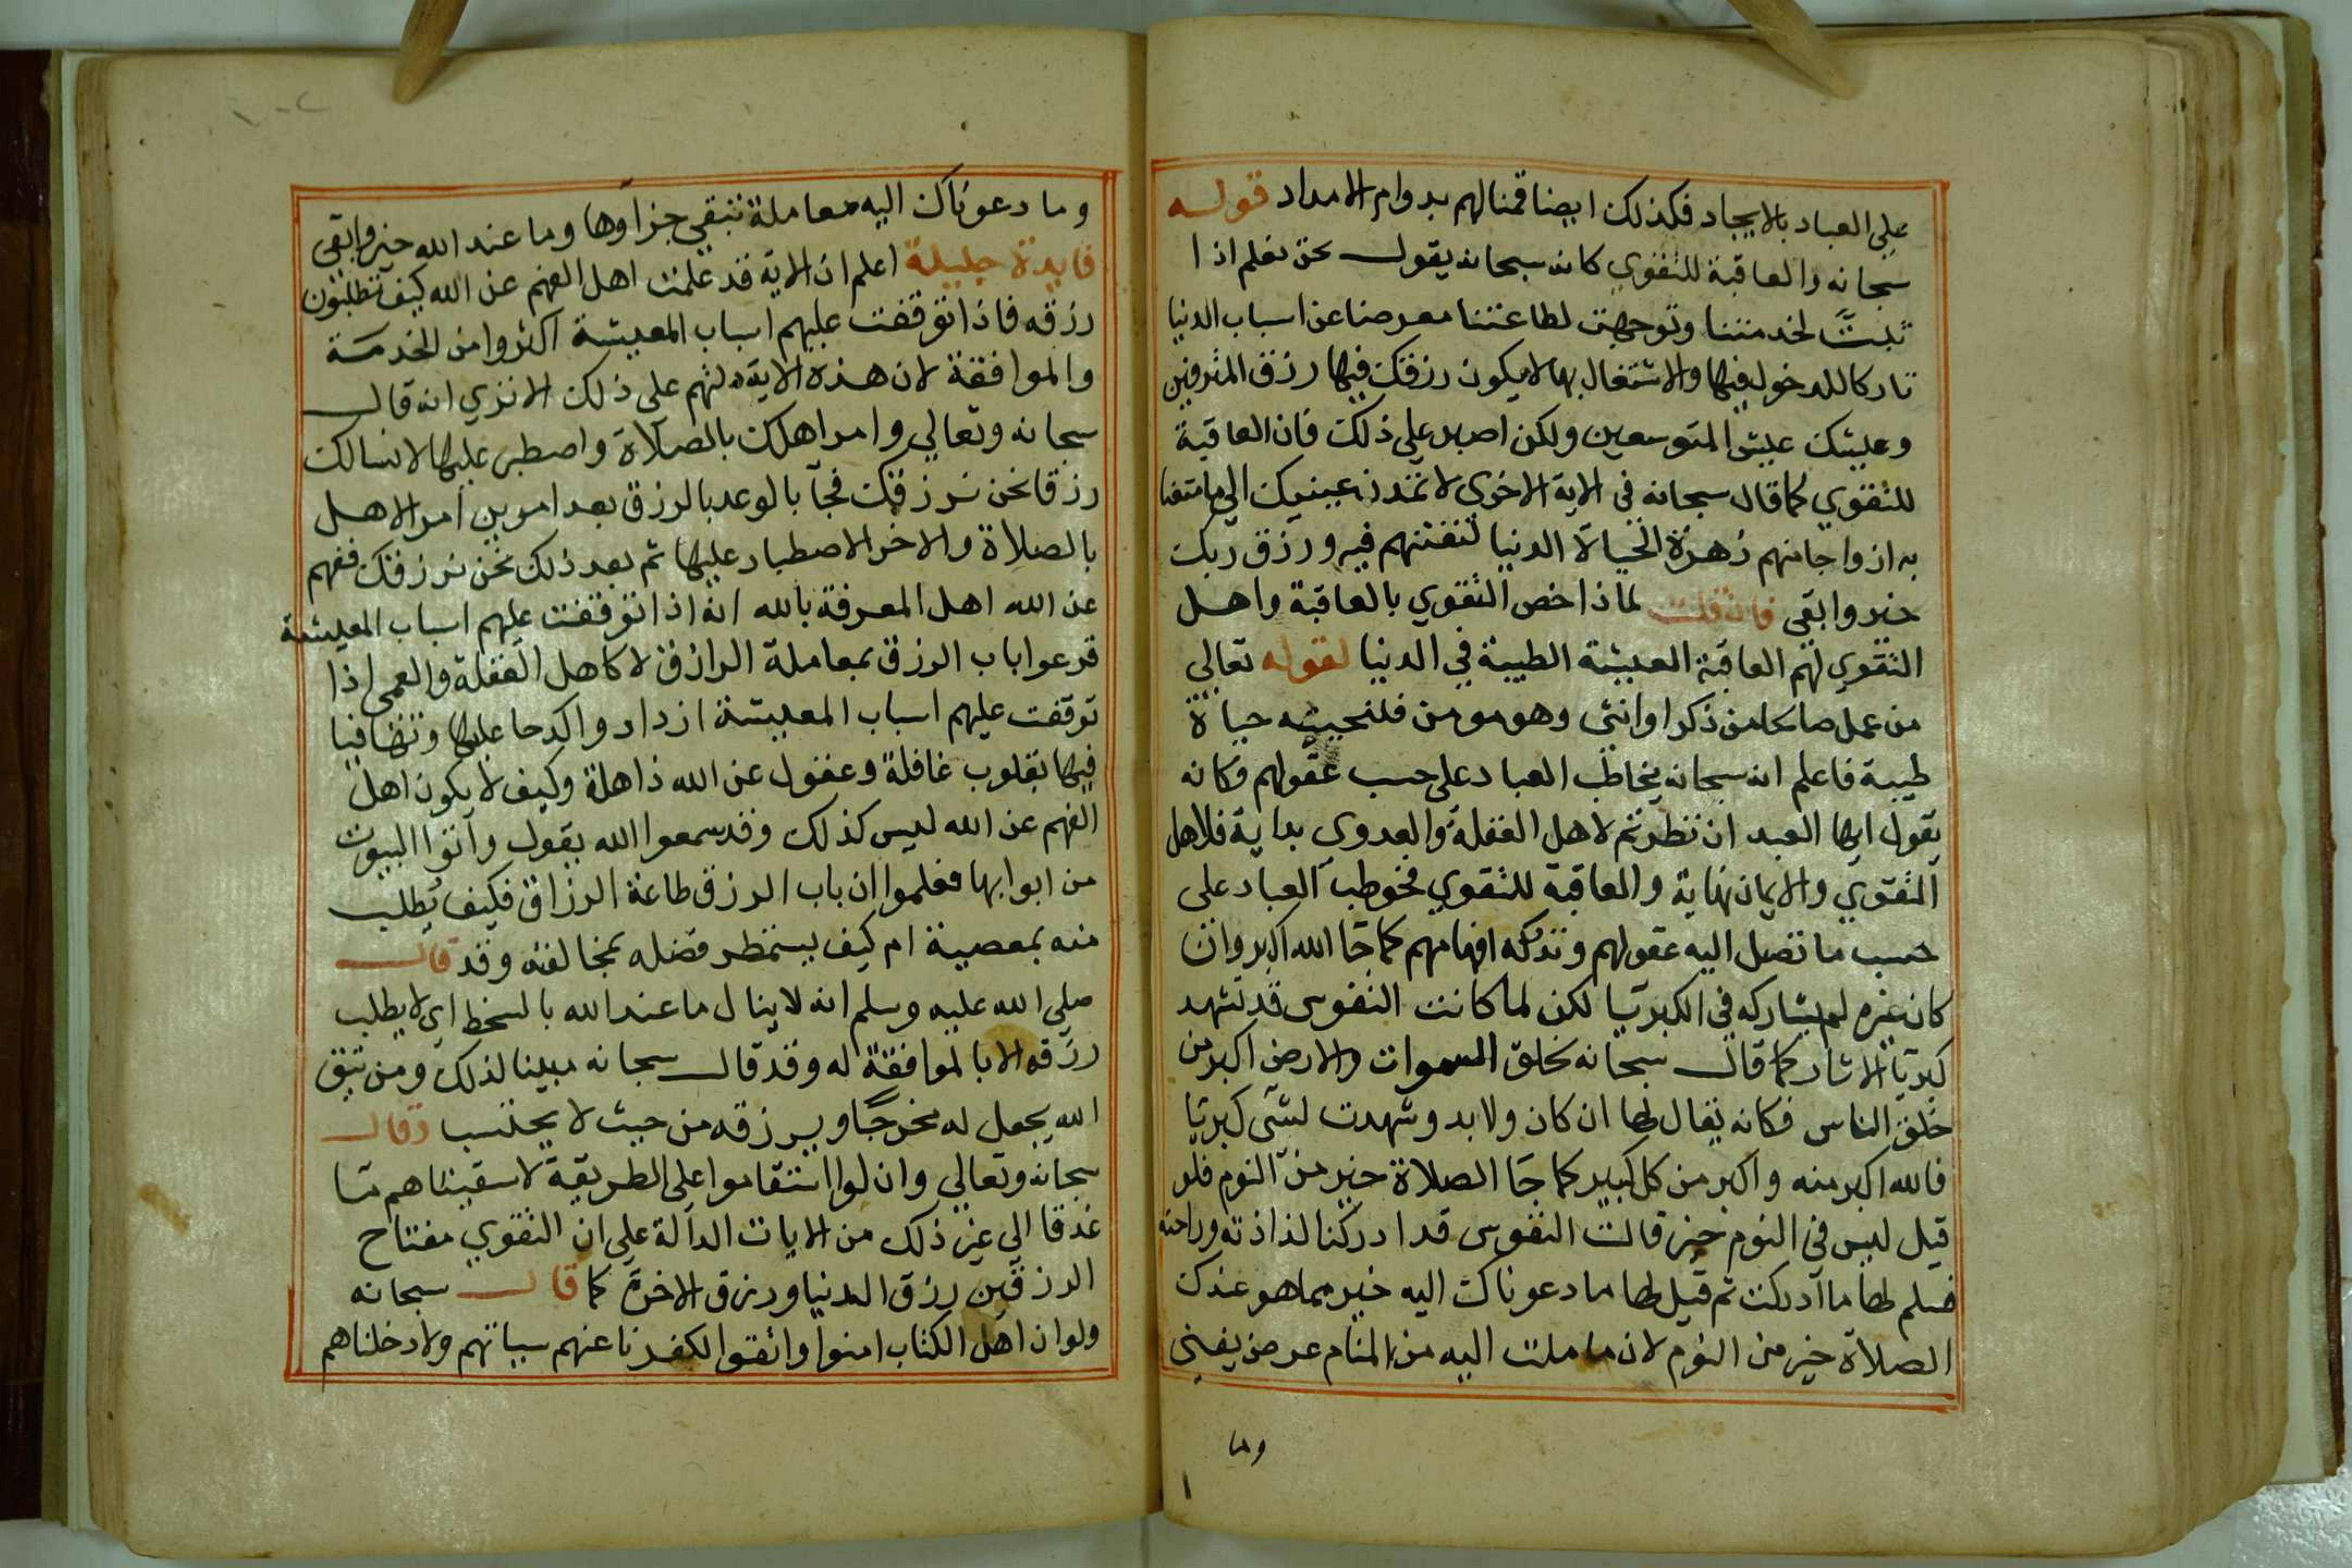 علي العباد بالايجاد فكذلك ايضا قمنا لهم بدوام الامداد قوله
سبحانه والعاقبة للتقوي كانه سبحانه يقول نحن نعلم اذا
لخدمتنا وتوجهت لطاعتنا معرضا عن اسباب الدنيا
تاركا للدخول فيها والاشتغال بها لا يكون رزقك فيها رزق المترفين
وعيشك عيش المتوسعين ولكن اصبر علي ذلك فان العاقبة
للتقوي كما قال سبحانه في الاية الاخري لا تمدن عينيك الي ما متعنا
به ازواجا منهم زهرة الحياة الدنيا لنفتنهم فيه ورزق ربك
خير وابقي فان قلت لماذا خص التقوي بالعاقبة واهل
التقوي لهم العاقبة العيشة الطيبة في الدنيا لقوله تعالي
من عمل صالحا من ذكر او انثي وهو مومن فلنحيينه حياة
طيبة فاعلم انه سبحانه يخاطب العباد علي حسب عقولهم وكانه
يقول ايها العبد ان نظرتم لاهل الغفلة والعدوي بداية فلاهل
التقوي والايمان نهاية والعاقبة للتقوي فخوطب العباد علي
حسب ما تصل اليه عقولهم وتدركه افهامهم كما جا الله اكبر وان
كان غيره لم يشاركه في الكبريا لكن لما كانت النفوس قد تشهد
كبريا الاثار كما قال سبحانه لخلق السموات والارض اكبر من
خلق الناس فكانه يقال لها ان كان ولا بد وشهدت لشي كبريا
فالله اكبر منه واكبر من كل كبير كما جا الصلاة خير من النوم فلو
قيل ليس في النوم خير قالت النفوس قد ادركنا لذاذته وراحته
فسلم لها ما ادركت ثم قيل لها ما دعوناك اليه خير مما هو عندك
الصلاة خير من النوم لان ما ملت اليه من المنام عرض يفني
وما
وما دعوناك اليه معاملة تبقي جزاوها وما عند الله خير وابقي
فايدة جليلة اعلم ان الاية قد علمت اهل الفهم عن الله كيف تطلبون
رزقه فاذا توقفت عليهم اسباب المعيشة اكثروا من الخدمة
والموافقة لان هذه الاية دلتهم علي ذلك الا تري انه قال
سبحانه وتعالي وامر اهلك بالصلاة واصطبر عليها لا نسالك
رزقا نحن نرزقك فجا بالوعد بالرزق بعد امرين امر الاهل
بالصلاة والاخر الاصطبار عليها ثم بعد ذلك نحن نرزقك ففهم
عن الله اهل المعرفة بالله انه اذا توقفت عليهم اسباب المعيشة
قرعوا باب الرزق بمعاملة الرازق لا كاهل الغفلة والعمي اذا
توقفت عليهم اسباب المعيشة ازدادوا كدحا عليها
فيها بقلوب غافلة وعقول عن الله ذاهلة وكيف لا يكون اهل
الفهم عن الله ليس كذلك وقد سمعوا الله يقول واتوا البيوت
من ابوابها فعلموا ان باب الرزق طاعة الرزاق فكيف يطلب
منه بمعصية ام كيف يستمطر فضله بمخالفته وقد قال
صلي الله عليه وسلم انه لا ينال ما عند الله بالسخط اي لا يطلب
رزقه الا بالموافقة له وقد قال سبحانه مبينا لذلك ومن يتق
الله يجعل له مخرجا ويرزقه من حيث لا يحتسب وقال
سبحانه وتعالي وان لو استقاموا علي الطريقة لاسقيناهم ما
غدقا الي غير ذلك من الايات الدالة علي ان التقوي مفتاح
الرزقين رزق الدنيا ورزق الاخرة كما قال سبحانه
ولو ان اهل الكتاب امنوا واتقوا لكفرنا عنهم سياتهم ولادخلناهم